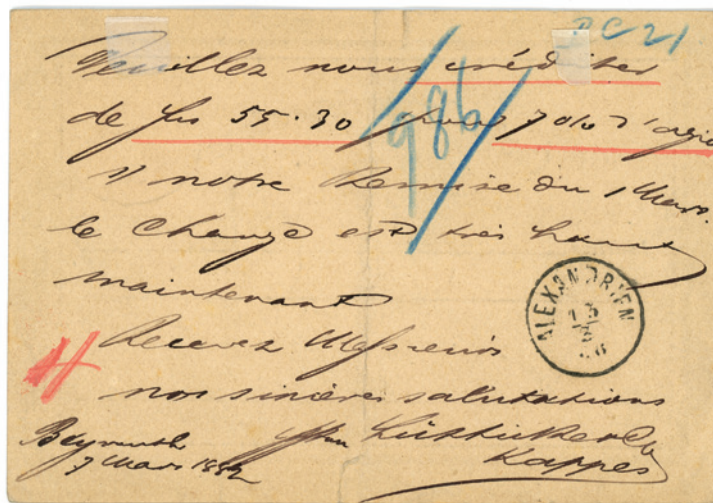 PC 21
Veuillez nous créditer
de fcs 55.30 pour 7 0/0 d'agio
986
s/ notre Remise du 1 Mars.
le Change est très haut
maintenant
ALEXANDRIEN
Recevez Messieurs
nos sincères salutations
Beyrouth
7 Mars
Kappes